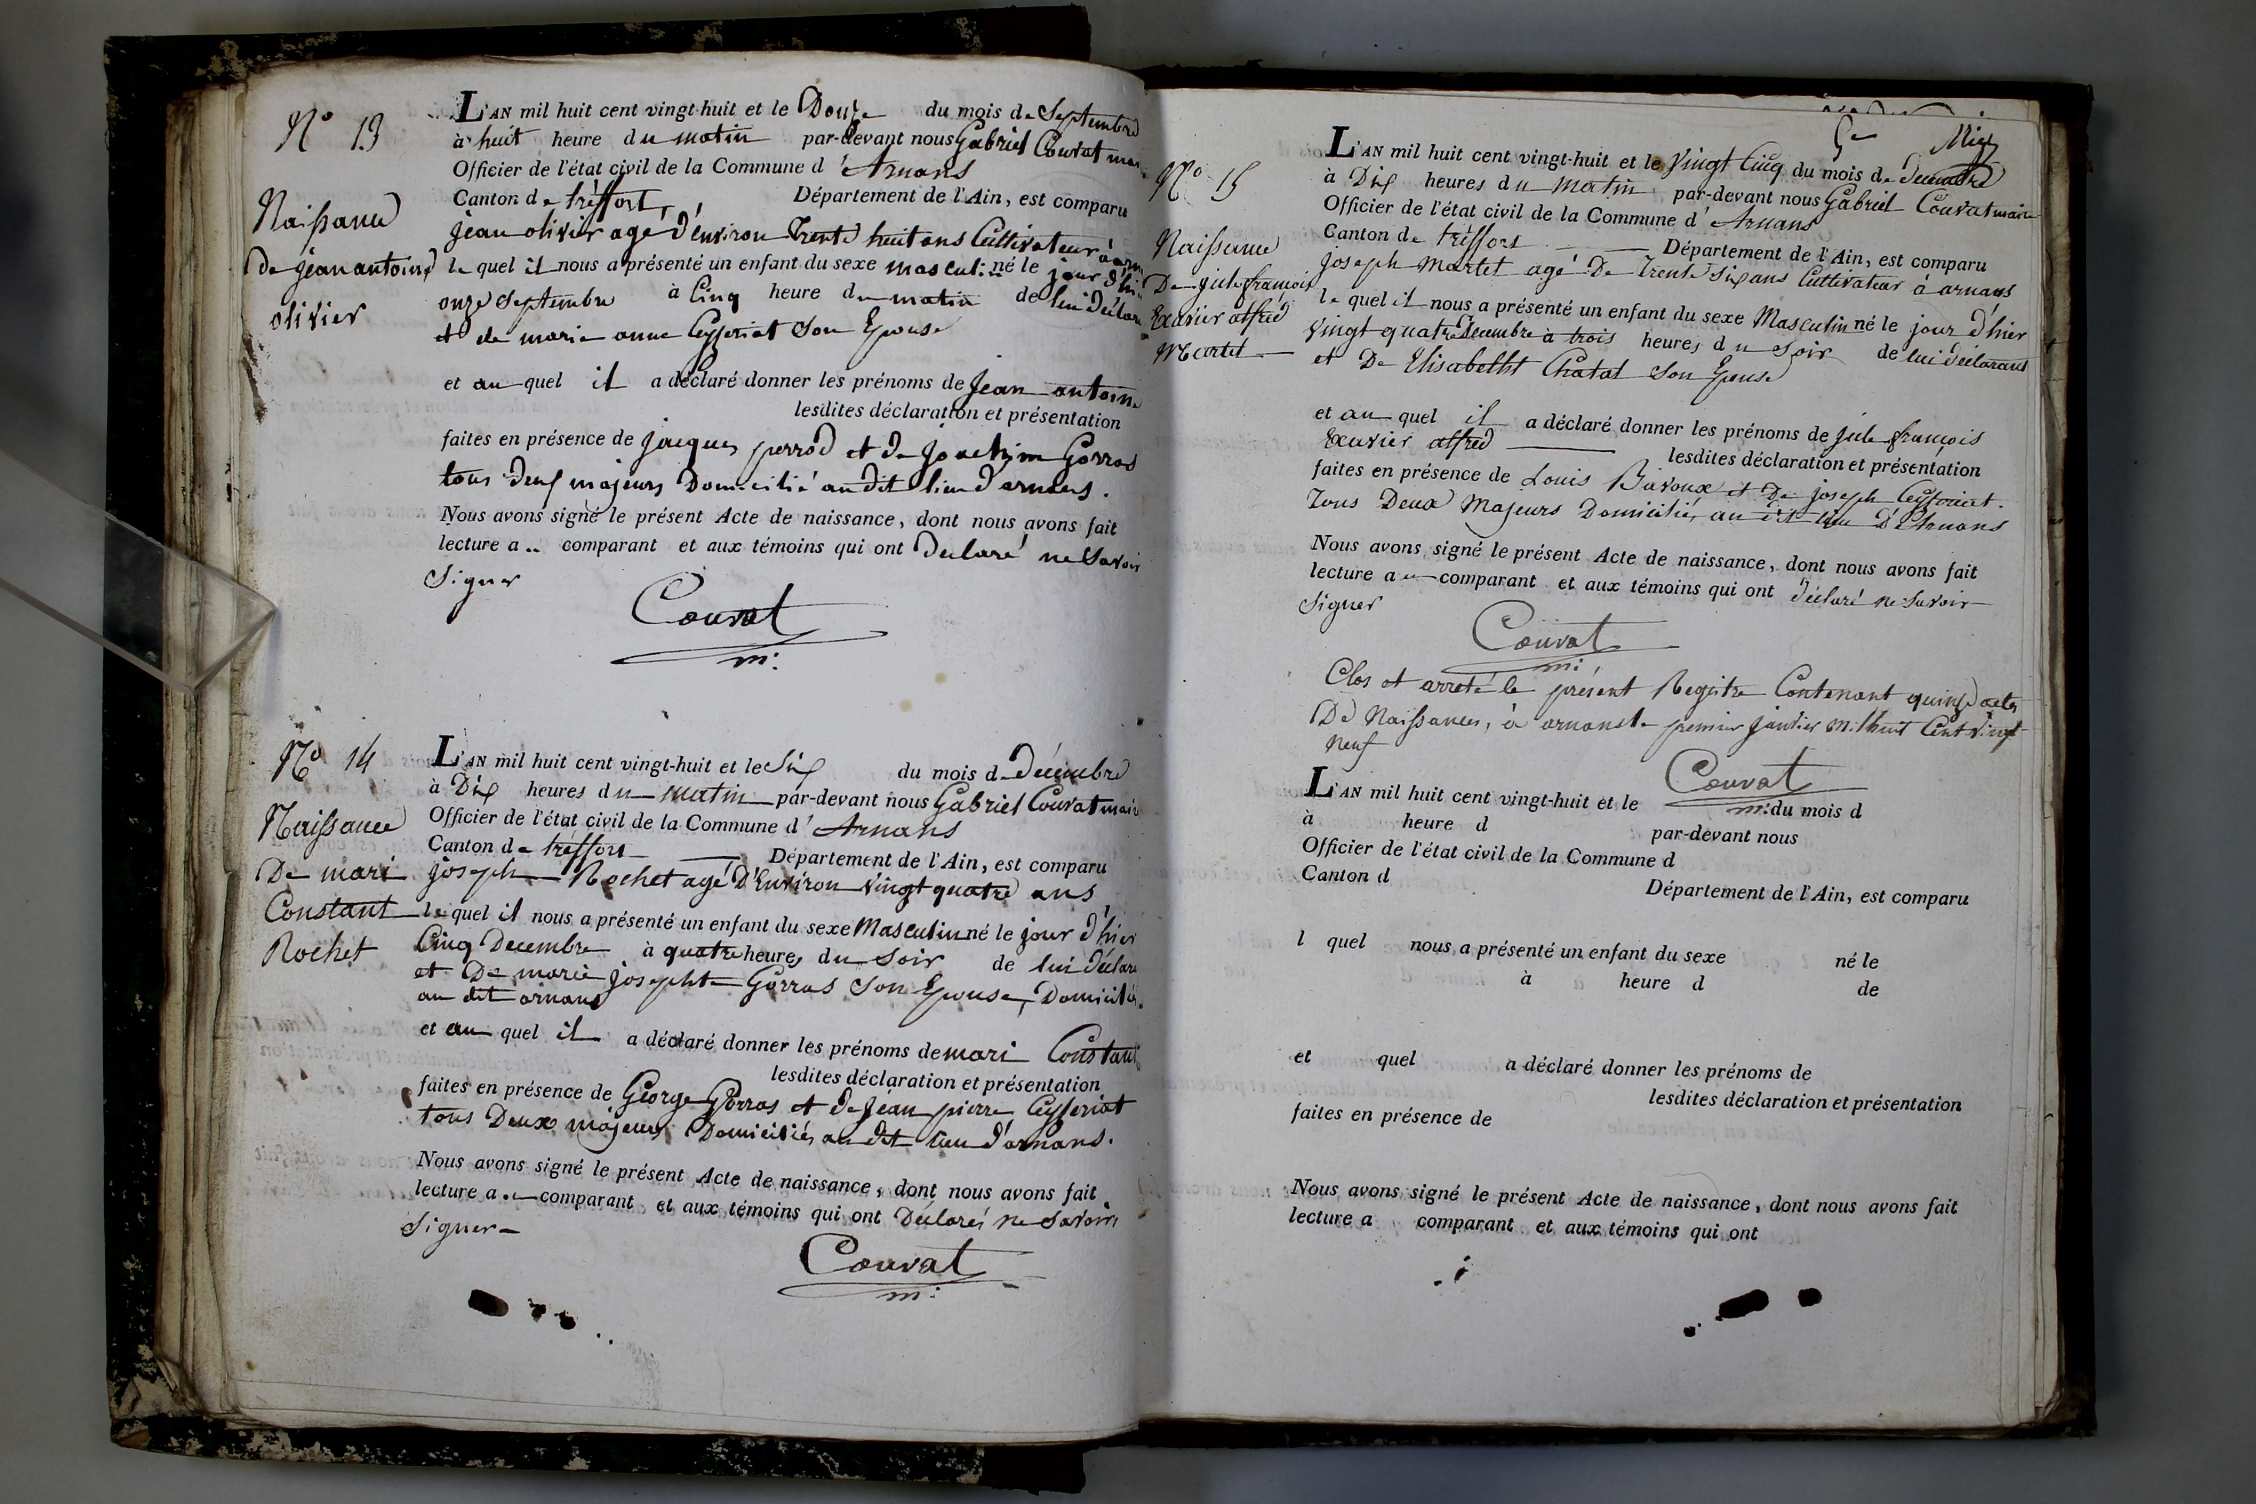 N° 13
Naissance
De jean antoine
olivier
L'AN mil huit cent vingt-huit et le Douze du mois de Septembre
à huit heure du matin par-devant nous Gabriel Couvat mai
Officier de l'état civil de la Commune d'Arnans
Canton de tréffort, Département de l'Ain, est comparu
jean olivier agé d'Environ Trente huit ans Cultivateur à arn
le quel il nous a présenté un enfant du sexe masculin né le jour d'hi
onze Septembre à Cinq heure du matin de lui déclar
et de marie anne Ceyseriat Son Epouse
et au quel il a déclaré donner les prénoms de Jean antoine
lesdites déclaration et présentation
faites en présence de jacques perrod et de joachim Gorras
tous deux majeurs Domicilié au dit lieu d'arnans.
Nous avons signé le présent Acte de naissance, dont nous avons fait
lecture a .. comparant et aux témoins qui ont declaré ne Savoir
Signer
Couvat
m:
N° 14
Naissance
De mari
Constant
Rochet
L'AN mil huit cent vingt-huit et le Six du mois de Décembre
à Dix heures du matin par-devant nous Gabriel Couvat mair
Officier de l'état civil de la Commune d'Arnans
Canton de tréffort Département de l'Ain, est comparu
joseph Rochet agé D'Environ Vingt quatre ans
le quel il nous a présenté un enfant du sexe Masculin né le jour d'hier
Cinq Decembre à quatre heures du Soir de lui déclara
et De marie josephte Gorras Son Epouse, Domiciliés
au dit arnans
et au quel il a déclaré donner les prénoms de mari Constant
lesdites déclaration et présentation
faites en présence de George Gorras et de Jean pierre Ceyseriat
tous Deux majeurs Domiciliés au dit lieu d'arnans.
Nous avons signé le présent Acte de naissance, dont nous avons fait
lecture a .. comparant et aux témoins qui ont Déclarés ne Savoir
Signer
Couvat
m:
N° 15
Naissance
De jule françois
Exavier alfred
Martet
L'AN mil huit cent vingt-huit et le Vingt Cinq du mois de Décembre
à Dix heures du matin par-devant nous Gabriel Couvat maire
Officier de l'état civil de la Commune d'Arnans
Canton de tréffort Département de l'Ain, est comparu
joseph Martet agé De Trente Six ans Cultivateur à arnans
le quel il nous a présenté un enfant du sexe Masculin né le jour d'hier
Vingt quatre Decembre à trois heures du Soir de lui déclarant
et De Elisabetht Chatal Son Epouse
et au quel il a déclaré donner les prénoms de jule françois
Exavier alfred lesdites déclaration et présentation
faites en présence de Louis Bavoux et De joseph Ceyseriat.
Tous Deux Majeurs Domiciliés au dit lieu D'Arnans
Nous avons signé le présent Acte de naissance, dont nous avons fait
lecture a comparant et aux témoins qui ont déclaré ne Savoir
Signer
Couvat
m:
Clos et arreté le présent Registre Contenant quinze actes
De Naissances, à arnans le premier janvier mil huit Cent Vingt
neuf
Couvat
m:
L'AN mil huit cent vingt-huit et le du mois d
à heure d par-devant nous
Officier de l'état civil de la Commune d
Canton d Département de l'Ain, est comparu
l quel nous a présenté un enfant du sexe né le
à heure d de
et quel a déclaré donner les prénoms de
lesdites déclaration et présentation
faites en présence de
Nous avons signé le présent Acte de naissance, dont nous avons fait
lecture a comparant et aux témoins qui ont